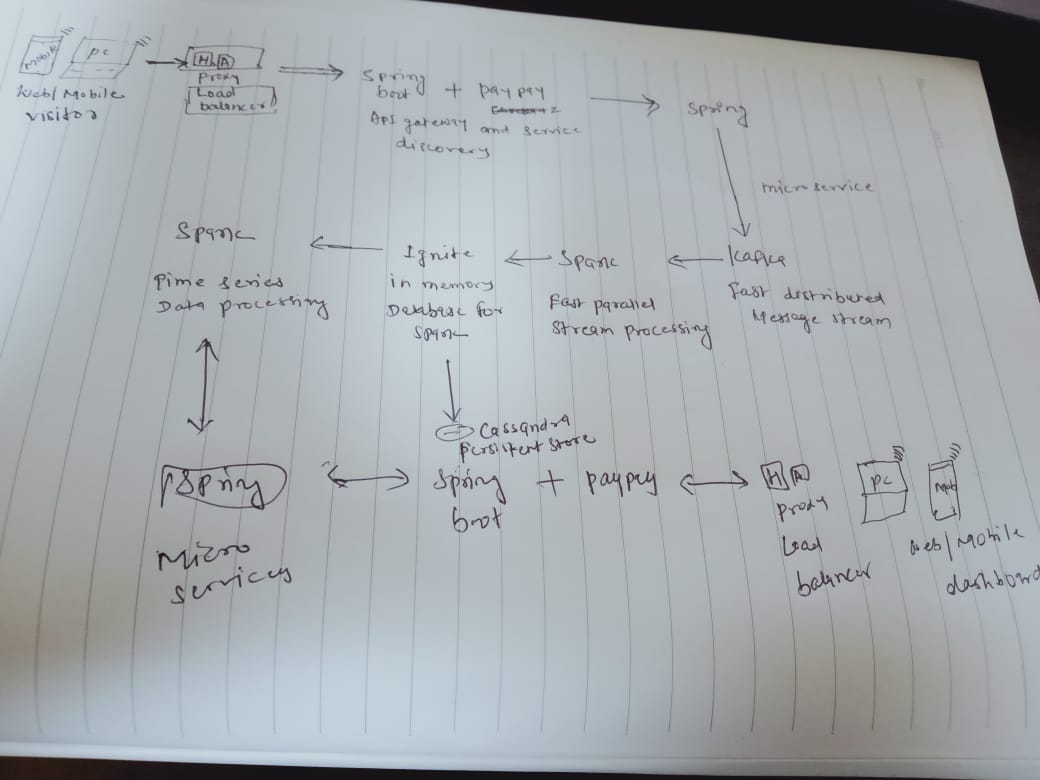 Mobile
PC
Web/Mobile
visitor
HA
Proxy
Load
balancer
Spring
boot
+ paypay
API gateway and service
discovery
Spring
microservice
Kafka
Fast distributed
Message stream
Spark
Fast parallel
Stream processing
Ignite
in memory
Database for
Spark
Spark
Time series
Data processing
Cassandra
Persistent store
Spring
Micro
services
Spring
boot
+ paypay
HA
proxy
Load
balancer
PC
Mob
Web/Mobile
dashboard